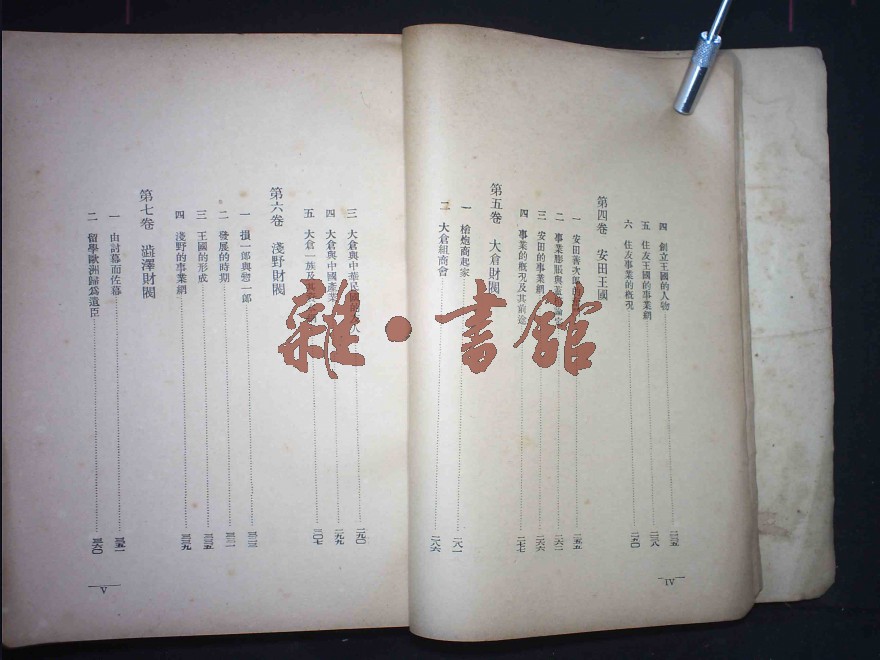 四 創立王國的人物……二三五
五 住友王國的事業網……二三八
六 住友事業的概況……二五〇
第四卷 安田王國
一 安田善次郎……二五五
二 事業膨脹與……二六二
三 安田的事業網……二六六
四 事業的概況及其前途……二七七
第五卷 大倉財閥
一 槍炮商起家……二八一
二 大倉組商會……二八六
IV
三 大倉與中華民國……二九〇
四 大倉與中國產業……二九九
五 大倉一族及其……三〇七
第六卷 淺野財閥
一 損一郎與惣一郎……三二三
二 發展的時期……三三一
三 王國的形成……三三五
四 淺野的事業網……三三九
第七卷 澁澤財閥
一 由討幕而佐幕……三五一
二 留學歐洲歸爲遺臣……三六〇
V
雜·書館